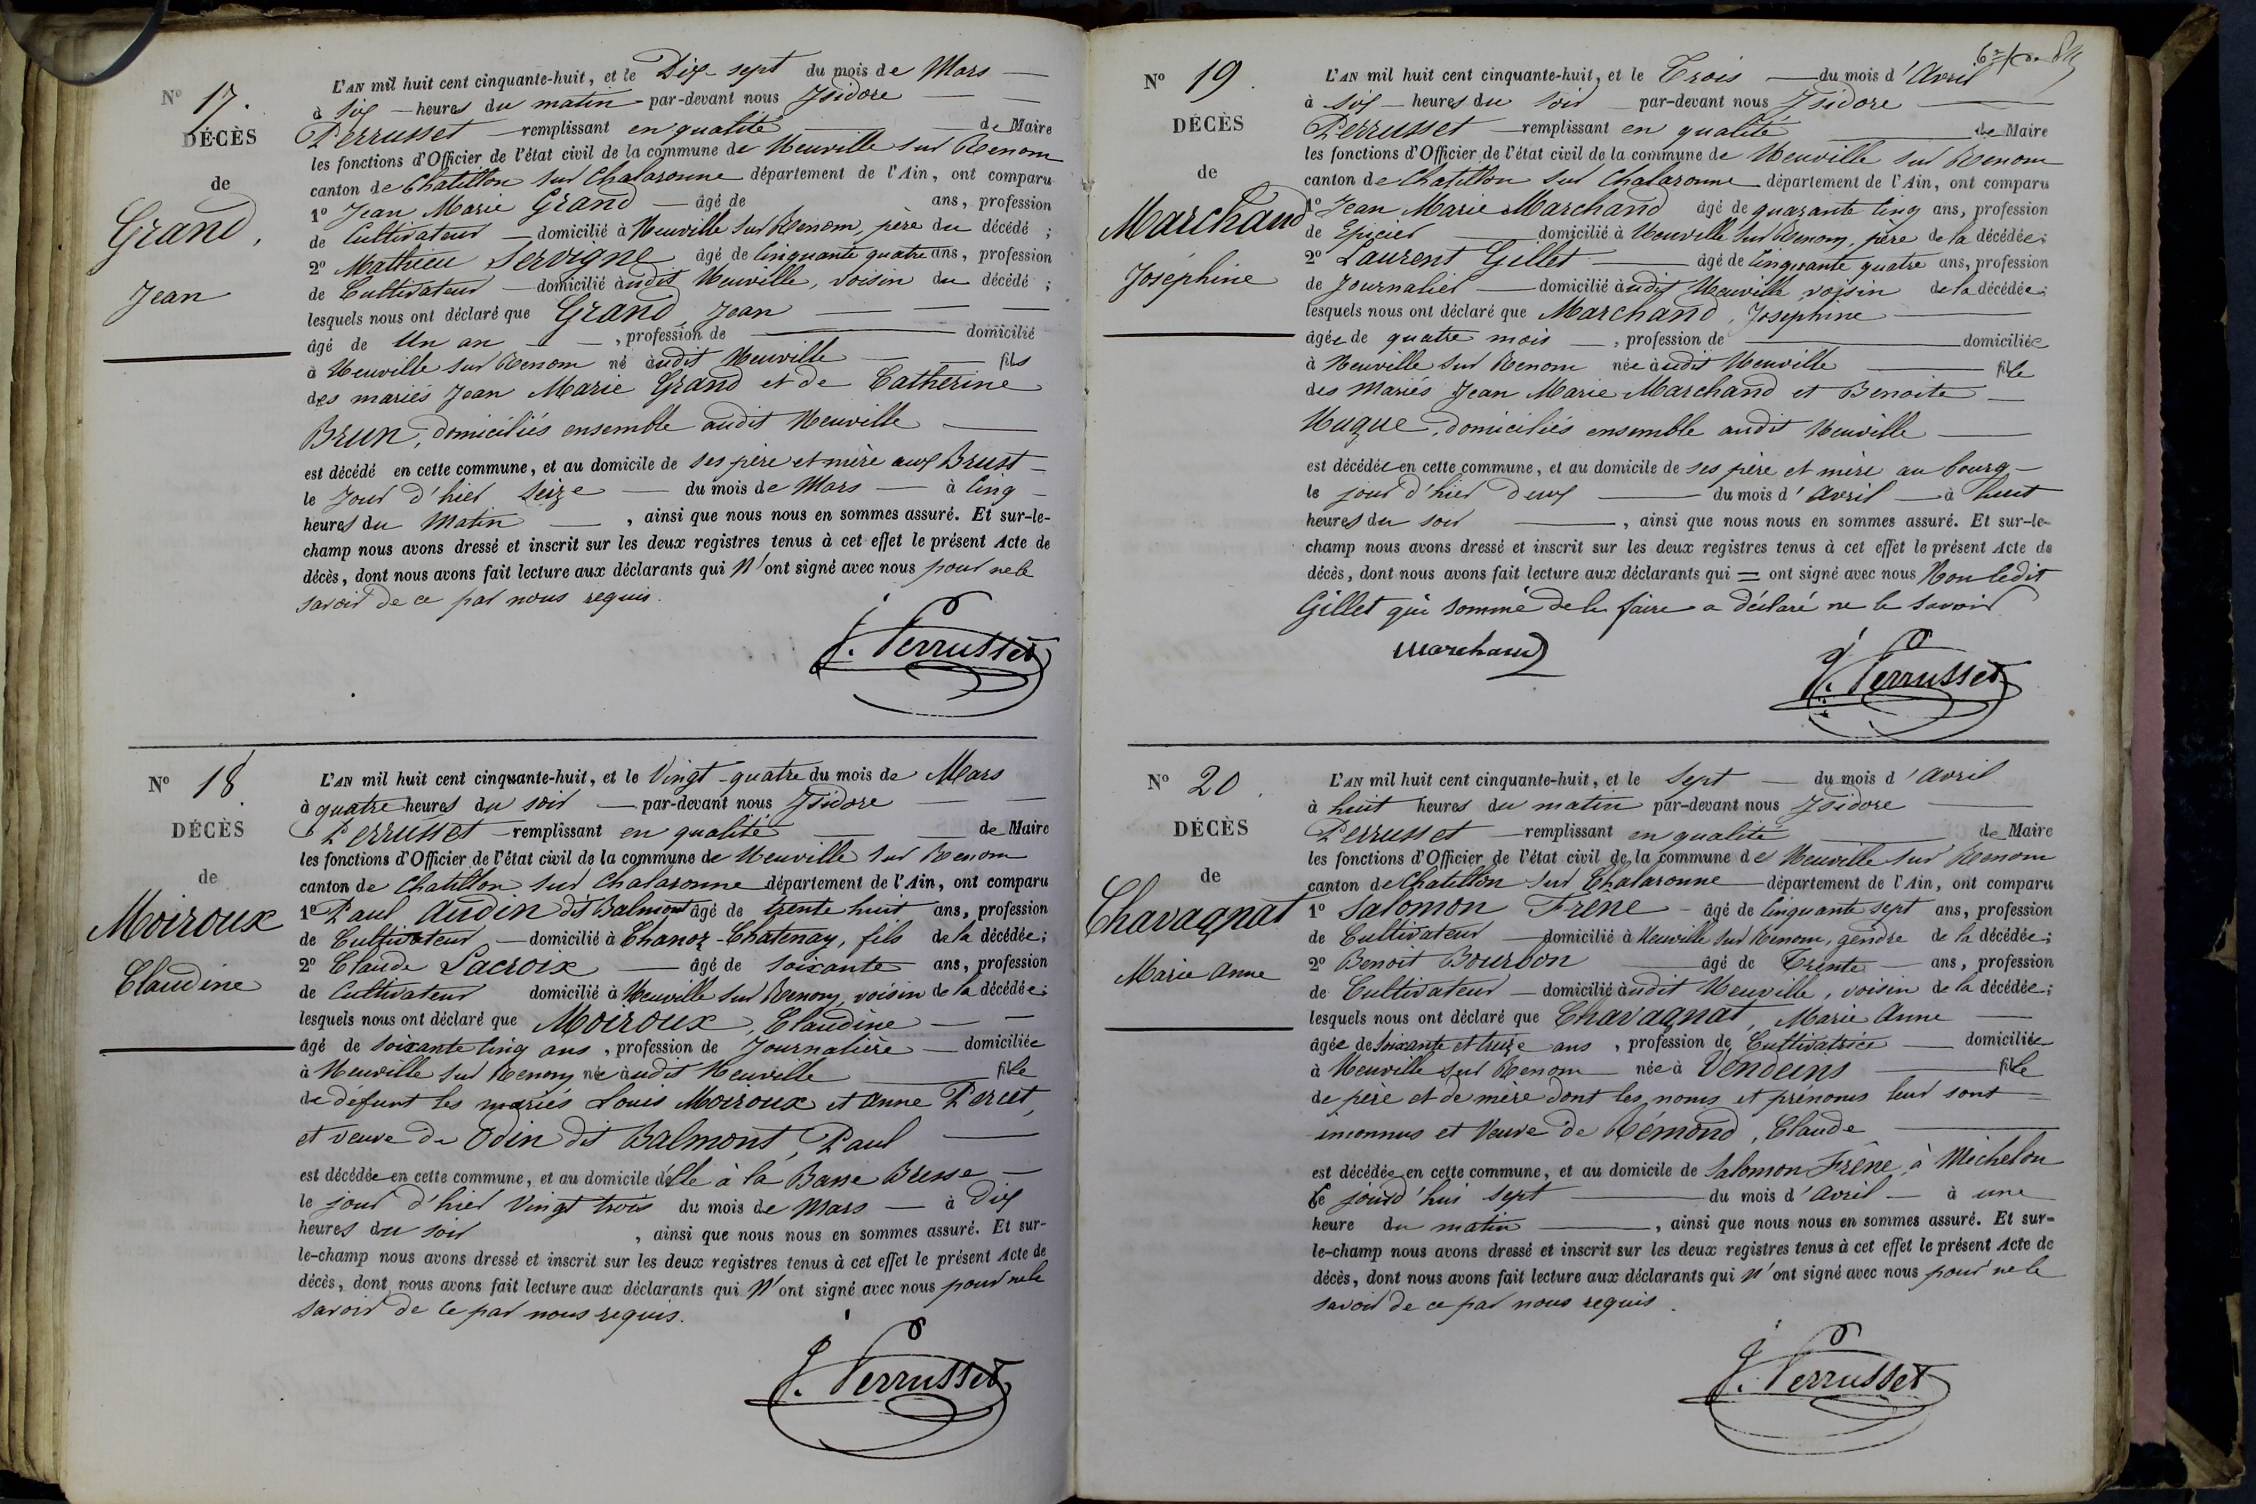 N° 17.
DÉCÈS
de
Grand,
Jean
L'AN mil huit cent cinquante-huit, et le Dix sept du mois de Mars
à six heures du matin par-devant nous Isidore
Perrusset remplissant en qualité de Maire
les fonctions d'Officier de l'état civil de la commune de Neuville sur Renom
canton de Chatillon sur Chalaronne département de l'Ain, ont comparu
1° Jean Marie Grand âgé de ans, profession
de Cultivateur domicilié à Neuville sur Renom, père du décédé ;
2° Mathieu Servigne âgé de cinquante quatre ans, profession
de Cultivateur domicilié audit Neuville, voisin du décédé ;
lesquels nous ont déclaré que Grand, Jean
âgé de Un an , profession de domicilié
à Neuville sur Renom né audit Neuville fils
des mariés Jean Marie Grand et de Catherine
Brun, domiciliés ensemble audit Neuville
est décédé en cette commune, et au domicile de ses père et mère aux Brust
le jour d'hier seize du mois de Mars à cinq
heures du matin , ainsi que nous nous en sommes assuré. Et sur-le-
champ nous avons dressé et inscrit sur les deux registres tenus à cet effet le présent Acte de
décès, dont nous avons fait lecture aux déclarants qui n'ont signé avec nous pour ne le
savoir de ce par nous requis.
J. Perrusset
N° 18
DÉCÈS
de
Moiroux
Claudine
L'AN mil huit cent cinquante-huit, et le Vingt-quatre du mois de Mars
à quatre heures du soir par-devant nous Isidore
Perrusset remplissant en qualité de Maire
les fonctions d'Officier de l'état civil de la commune de Neuville sur Renom
canton de Chatillon sur Chalaronne département de l'Ain, ont comparu
1° Paul Audin dit Balmont âgé de trente huit ans, profession
de Cultivateur domicilié à Chanoz-Chatenay, fils de la décédée ;
2° Claude Lacroix âgé de soixante ans, profession
de Cultivateur domicilié à Neuville sur Renom, voisin de la décédée ;
lesquels nous ont déclaré que Moiroux, Claudine
âgé de soixante cinq ans , profession de Journalière domiciliée
à Neuville sur Renom née audit Neuville fille
de défunt les mariés Louis Moiroux et Anne Percet,
et veuve de Odin dit Balmont, Paul
est décédée en cette commune, et au domicile d'elle à la Basse Bresse
le jour d'hier vingt trois du mois de Mars à dix
heures du soir , ainsi que nous nous en sommes assuré. Et sur-
le-champ nous avons dressé et inscrit sur les deux registres tenus à cet effet le présent Acte de
décès, dont nous avons fait lecture aux déclarants qui n'ont signé avec nous pour ne le
savoir de ce par nous requis.
J. Perrusset
N° 19.
DÉCÈS
de
Marchand
Joséphine
L'AN mil huit cent cinquante-huit, et le Trois du mois d'Avril
à six heures du soir par-devant nous Isidore
Perrusset remplissant en qualité de Maire
les fonctions d'Officier de l'état civil de la commune de Neuville sur Renom
canton de Chatillon sur Chalaronne département de l'Ain, ont comparu
1° Jean Marie Marchand âgé de quarante cinq ans, profession
de Epicier domicilié à Neuville sur Renom, père de la décédée ;
2° Laurent Gillet âgé de cinquante quatre ans, profession
de Journalier domicilié audit Neuville voisin de la décédée ;
lesquels nous ont déclaré que Marchand, Josephine
âgée de quatre mois , profession de domiciliée
à Neuville sur Renom née audit Neuville fille
des mariés Jean Marie Marchand et Benoite
Nuque, domiciliés ensemble audit Neuville
est décédée en cette commune, et au domicile de ses père et mère au bourg
le jour d'hier deux du mois d'Avril à huit
heures du soir , ainsi que nous nous en sommes assuré. Et sur-le-
champ nous avons dressé et inscrit sur les deux registres tenus à cet effet le présent Acte de
décès, dont nous avons fait lecture aux déclarants qui = ont signé avec nous Non ledit
Gillet qui sommé de le faire a déclaré ne le savoir
Marchand
J. Perrusset
N° 20.
DÉCÈS
de
Chavagnat
Marie Anne
L'AN mil huit cent cinquante-huit, et le Sept du mois d'Avril
à huit heures du matin par-devant nous Isidore
Perrusset remplissant en qualité de Maire
les fonctions d'Officier de l'état civil de la commune de Neuville sur Renom
canton de Chatillon sur Chalaronne département de l'Ain, ont comparu
1° Salomon Frene âgé de cinquante sept ans, profession
de Cultivateur domicilié à Neuville sur Renom, gendre de la décédée ;
2° Benoit Bourbon âgé de Trente ans, profession
de Cultivateur domicilié audit Neuville, voisin de la décédée ;
lesquels nous ont déclaré que Chavagnat, Marie Anne
âgée de soixante et treize ans , profession de Cultivatrice domiciliée
à Neuville sur Renom née à Vendeins fille
de père et de mère dont les noms et prénoms leur sont
inconnus et Veuve de Rémond, Claude
est décédée en cette commune, et au domicile de Salomon Frêne, à Michelon
Ce jourd'hui sept du mois d'Avril à une
heure du matin , ainsi que nous nous en sommes assuré. Et sur-
le-champ nous avons dressé et inscrit sur les deux registres tenus à cet effet le présent Acte de
décès, dont nous avons fait lecture aux déclarants qui n'ont signé avec nous pour ne le
savoir de ce par nous requis.
J. Perrusset